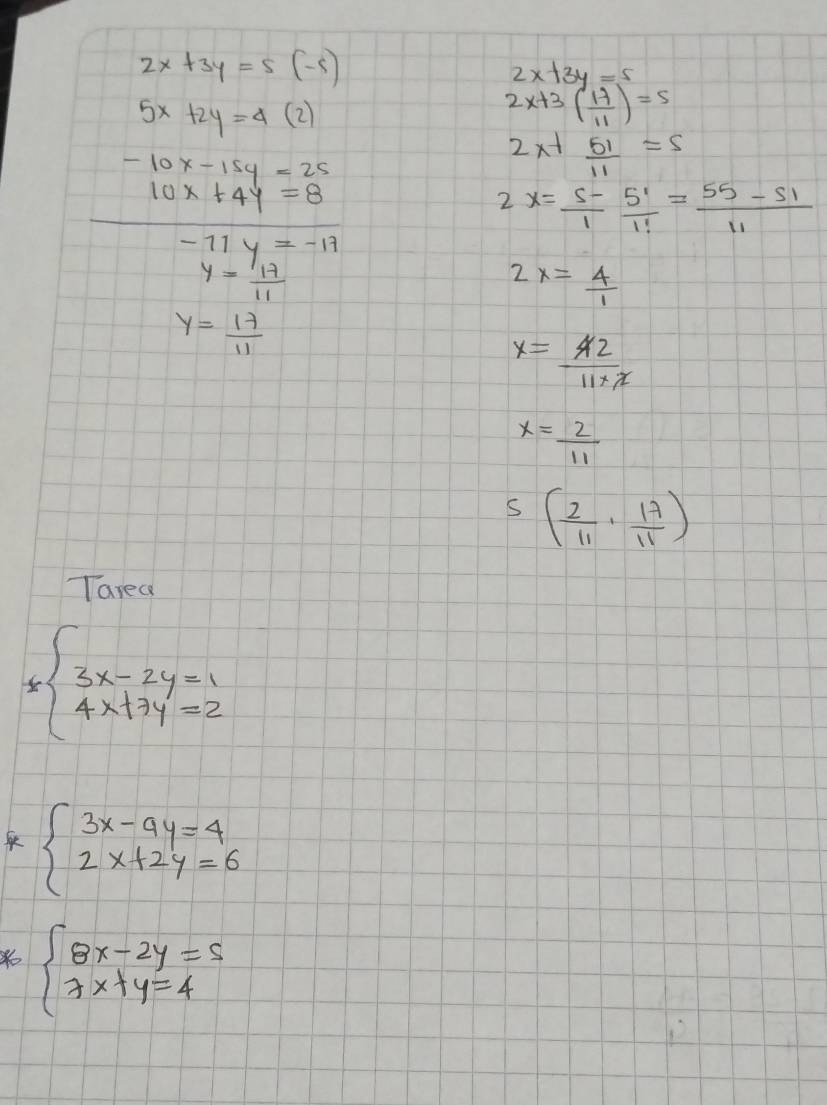 2x + 3y = 5 (-5)
5x + 2y = 4 (2)
-10x - 15y = 25
10x + 4y = 8
-11 y = -17
y = 17/11
y = 17/11
2x + 3y = 5
2x + 3 (17/11) = 5
2x + 51/11 = 5
2x = 5/1 - 51/11 = 55 - 51/11
2x = 4/1
x = 42/11 × 2
x = 2/11
S (2/11 , 17/11)
Tarea
* { 3x - 2y = 1
4x + 7y = 2
* { 3x - 9y = 4
2x + 2y = 6
* { 8x - 2y = 5
7x + y = 4